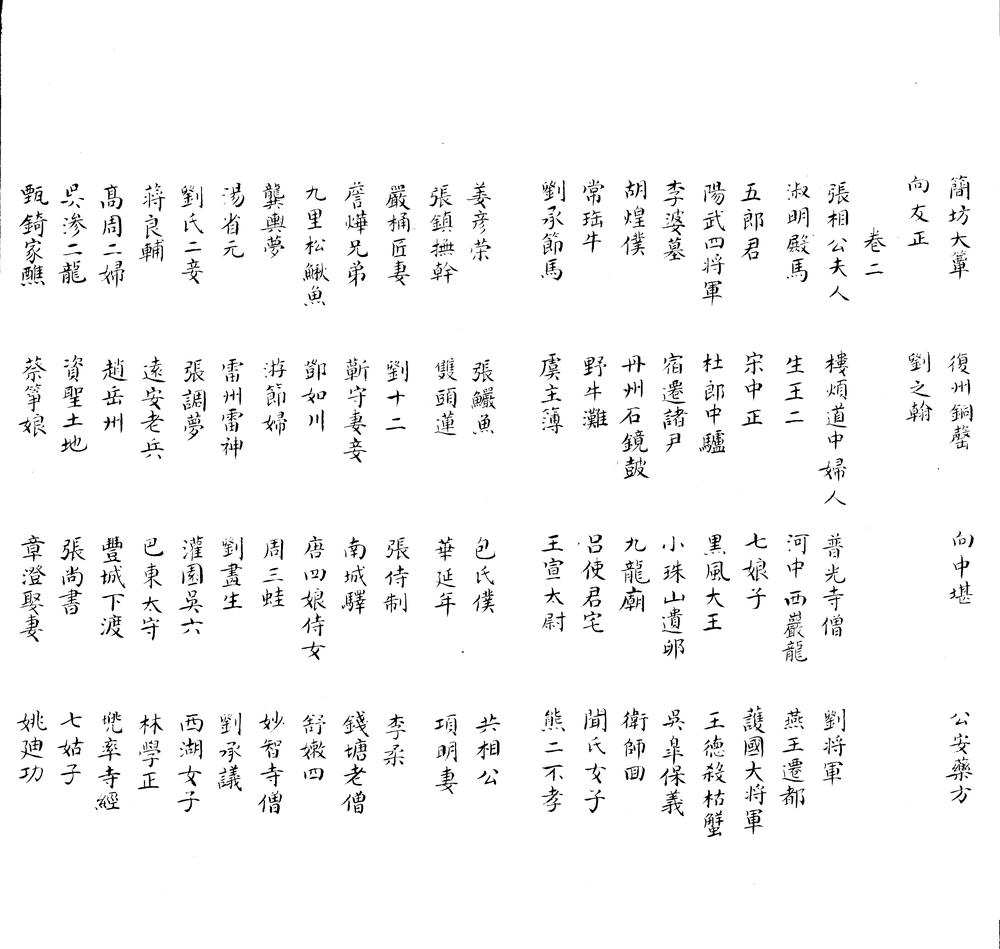 簡坊大蕈 復州銅磬 向中堪 公安藥方
向友正 劉之翰
卷二
張相公夫人 樓煩道中婦人 普光寺僧 劉將軍
淑明殿馬 生王二 河中西巖龍 燕王遷都
五郎君 宋中正 七娘子 護國大將軍
陽武四將軍 杜郎中驢 黑風大王 王德殺枯蟹
李婆墓 宿遷諸尹 小珠山遺卵 吳臯保義
胡煌僕 丹州石鏡皷 九龍廟 衛師回
常瑤牛 野牛灘 呂使君宅 聞氏女子
劉承節馬 虞主簿 王宣太尉 熊二不孝
姜彦榮 張鱺魚 包氏僕 共相公
張鎮撫幹 雙頭蓮 華延年 項明妻
嚴桶匠妻 劉十二 張侍制 李柔
詹燁兄弟 靳守妻妾 南城驛 錢塘老僧
九里松鰍魚 鄧如川 唐四娘侍女 舒嫩四
龔輿夢 游節婦 周三蛙 妙智寺僧
湯省元 雷州雷神 劉畫生 劉承議
劉氏二妾 張調夢 灌園吳六 西湖女子
蔣良輔 遠安老兵 巴東太守 林學正
髙周二婦 趙岳州 豐城下渡 兜率寺經
吳滲二龍 資聖土地 張尚書 七姑子
甄錡家醮 蔡箏娘 章澄娶妻 姚廸功